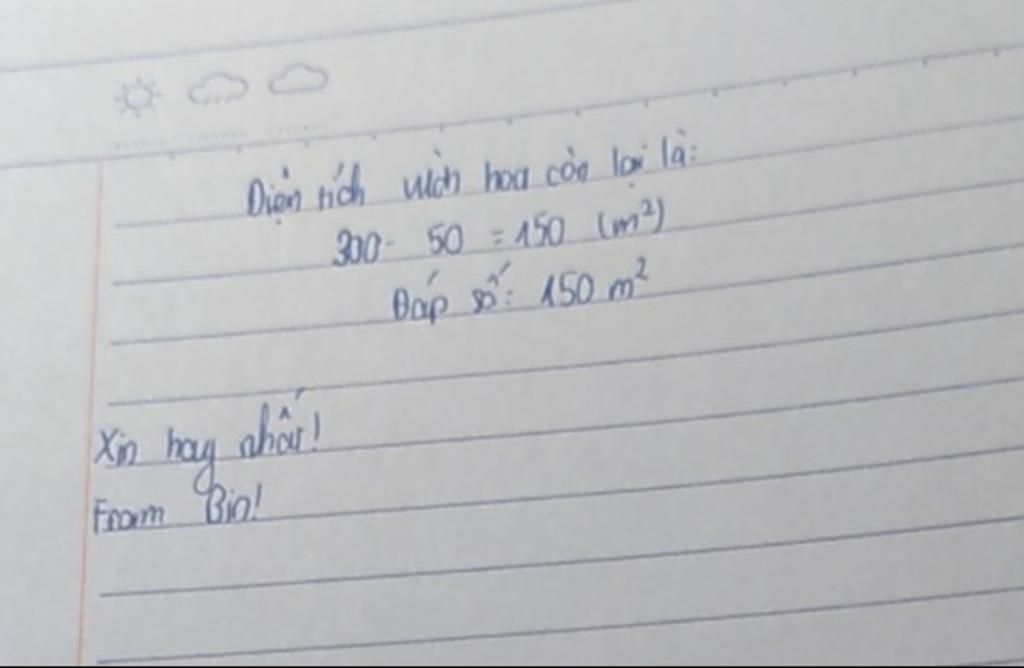 Diện tích vườn hoa còn lại là:
300 - 50 = 150 (m²)
Đáp số: 150 m²
Xin hay nhất!
From Bin!